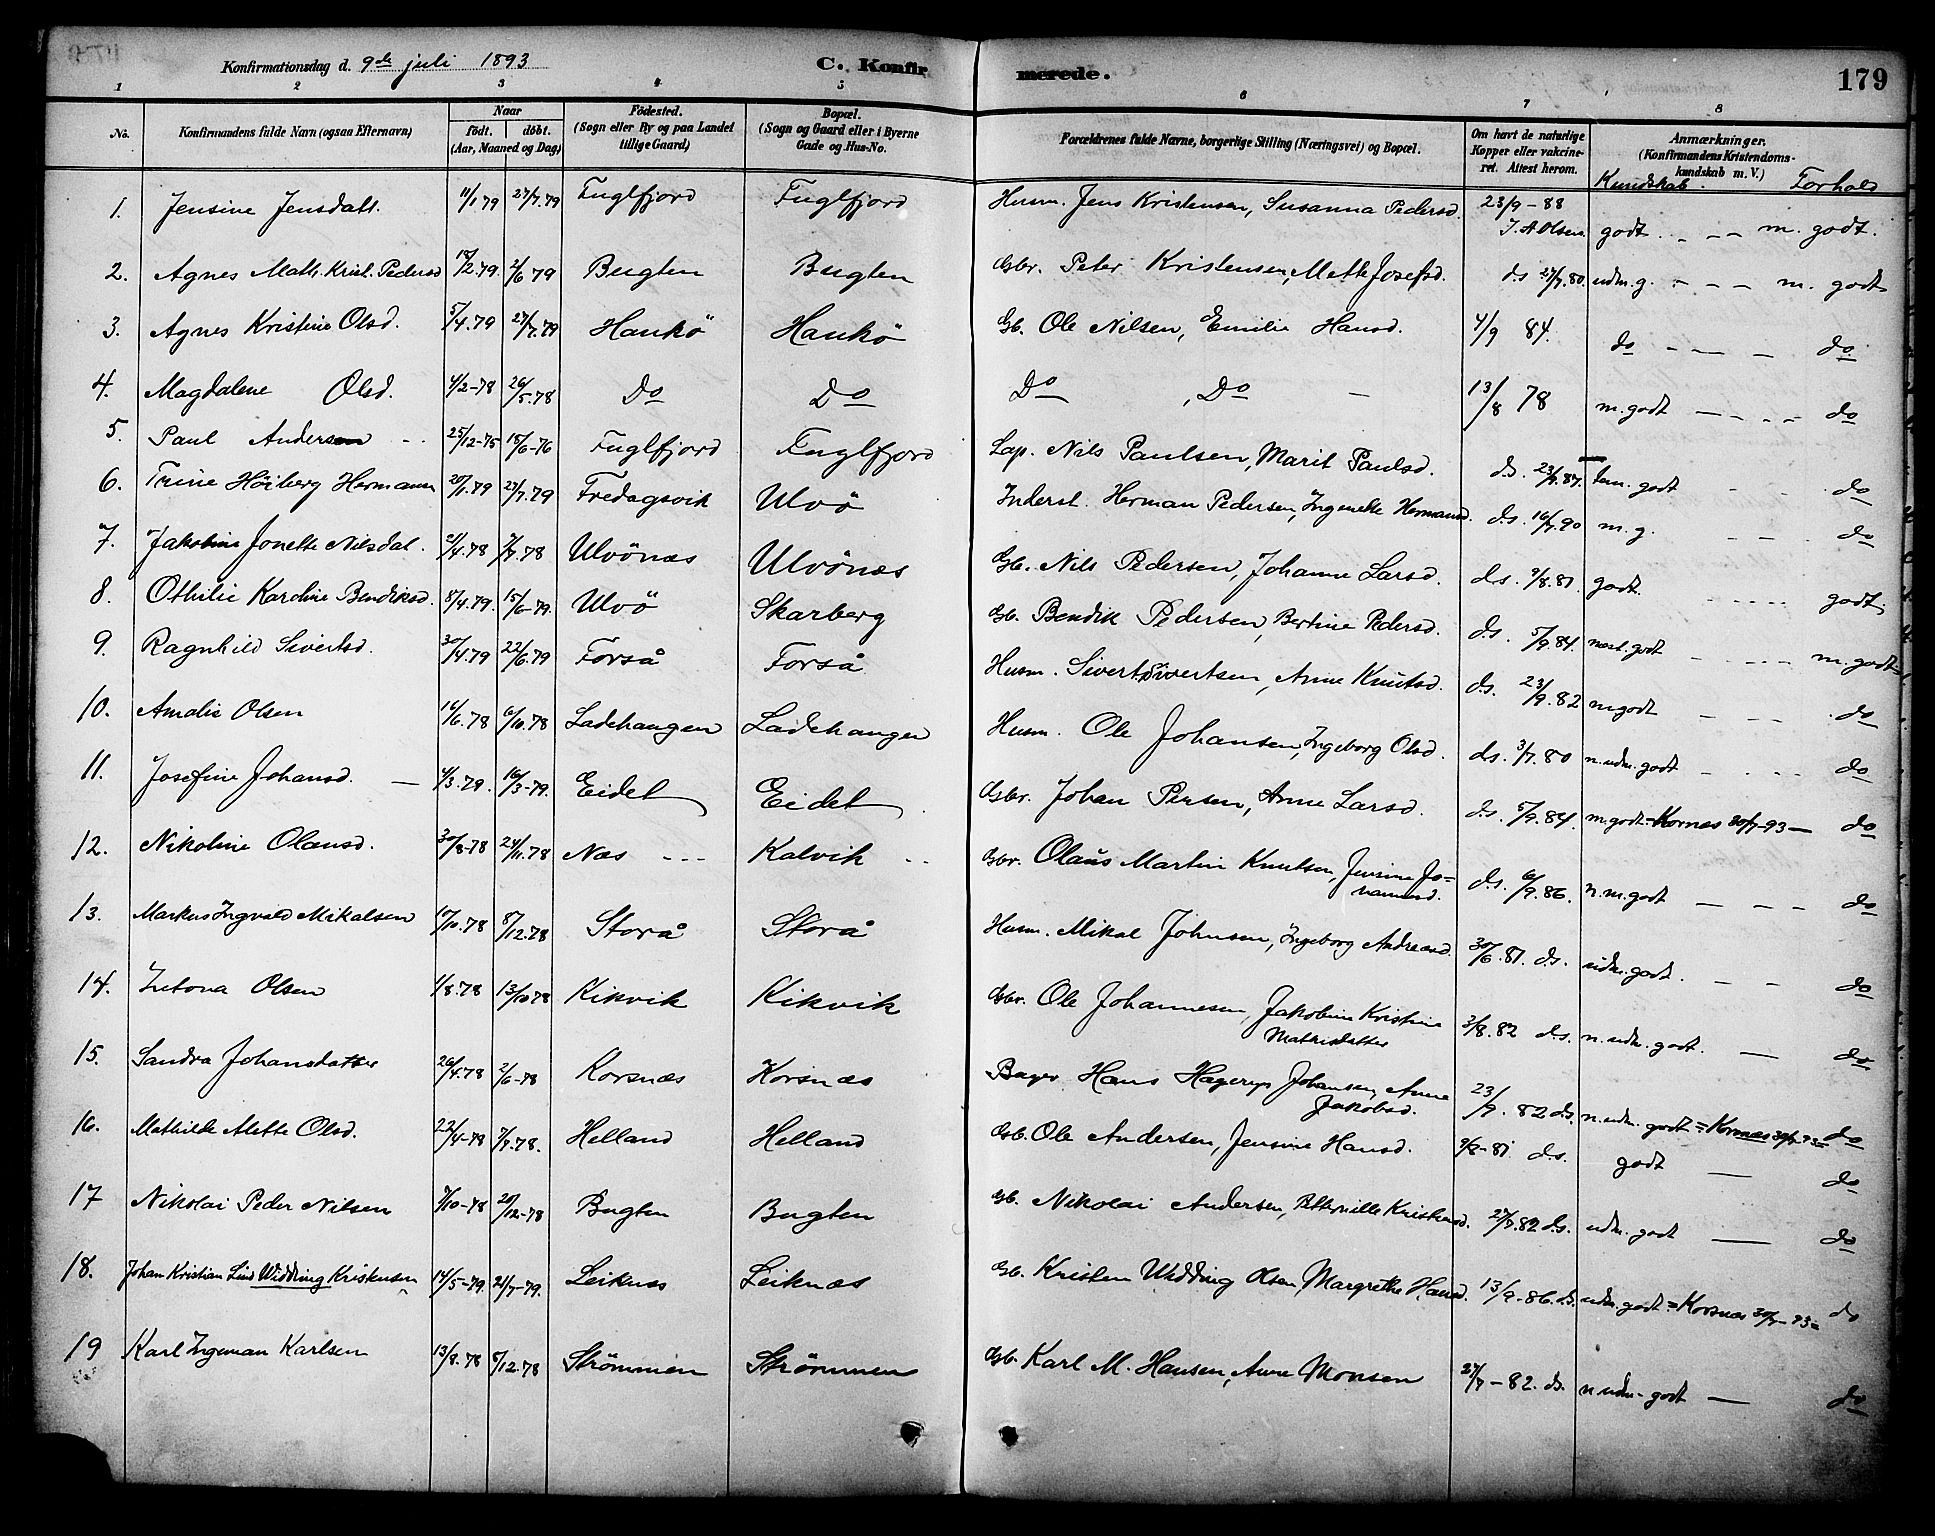 Konfirmationsdag d. 9de juli 1893 C. Konfirmerede. 179
1 2 3 4 5 6 7 8
No. Konfirmandens fulde Navn (ogsaa Efternavn) Naar födt. döbt. (Aar, Maaned og Dag) Födested. (Sogn eller By og paa Landet tillige Gaard) Bopæl. (Sogn og Gaard eller i Byerne Gade og Hus-No. Forældrenes fulde Navne, borgerlige Stilling (Næringsvei) og Bopæl. Om havt de naturlige Kopper eller vakcineret. Attest herom. Anmærkninger. (Konfirmandens Kristendomskundskab m. V.) Kundskab. Forhold
1. Jensine Jensdatt. 11/1 79 27/7.79 Fuglfjord Fuglfjord Husm. Jens Kristensen, Susanna Pedersd. 23/9-88 J. A Olsen. godt. - - - m. godt.
2. Agnes Math. Krist. Pedersd 2.79 2/6 79 Bugten Bugten Gbr. Peter Kristensen, Mette Josefsd. ds 27/7.80. udm. g. - - - m. godt
3. Agnes Kristine Olsd. 5/4.79 27/7.79 Haukö Haukö Gb. Ole Nilsen, Emilie Hansd. 4/9 84. do - - - do
4. Magdalene Olsd. 4/2-78 26/5.78 Do Do Do , Do - 13/8 78 m. godt - - - do
5. Paul Andersen - - 25/12-75 18/6-76 Fuglfjord Fuglfjord Lap. Nils Paulsen, Marit Paulsd. ds. 23/9.87. tem. godt - - do
6. Trine Höiberg Hermansen 20/1.79 27/7.79 Fredagsvik Ulvö Inderst. Herman Pedersen, Ingenette Hermansd. ds. 16/7.90 m. g. - - - do
7. Jakobine Jonette Nilsdat. 21/4.78 7/7.78 Ulvönæs Ulvönæs Gb. Nils Pedersen, Johanne Larsd. ds. 9/8.81. godt. - - - - godt.
8. Othilie Karoline Bendiksd. 8/4.79. 15/6-79. Ulvö Skarberg Gb. Bendik Pedersen, Bertine Pedersd. ds. 5/9.84. mest. godt - - - - m. godt
9. Ragnhild Sivertsd. 30/4.79 22/6.79 Forså Forså Husm. Sivert Sivertsen, Anne Knutsd. ds. 23/9.82 m godt - - - do
10. Amalie Olsen 16/6.78 6/10.78 Ladehaugen Ladehaugen Husm. Ole Johansen, Ingeborg Olsd. ds. 3/7.80 n. udm. godt - - - do
11. Josefine Johansd. - 4/3.79. 16/3-79. Eidet Eidet Gbr. Johan Persen, Anne Larsd. ds. 5/9.84. m. godt = Kornes 30/7-93 - do
12. Nikoline Olausd. 30/8-78 24/11.78 Næs - - - Kalvik - - Gbr. Olaus Martin Knutsen, Jensine Jovannesd. ds. 6/9.86. n. m. godt - - - do
13. Markus Ingvald Mikalsen 10/10.78 8/12.78 Storå Storå Husm. Mikal Johnsen, Ingeborg Andreasd. 30/6.81. ds. udm. godt. - - do
14. Zetona Olsen 1/8.78 13/10 78 Kikvik Kikvik Gbr. Ole Johannesen, Jakobine Kristine Mathisdatter 3/8.82 ds. n. udm. godt. - do
15. Sandra Johansdatter 26/4.78 2/6-78 Korsnæs Korsnæs Bager Hans Hagerup Johansen, Anne Jakobsd. 23/9.82 ds. n. udm. godt = Kornæs 30/7-93= do
16. Mathilde Alette Olsd. 22/4-78 7/7.78. Helland Helland Gb. Ole Andersen, Jensine Hansd. 9/8-81 ds. godt - do
17 Nikolai Peder Nilsen 7/10-78 20/12-78 Bugten Bugten Gb. Nikolai Andersen, Petternille Kristensd. 27/7.82 ds. udm. godt - do
18. Johan Kristian Lind Widding Kristensen 14/5-79 21/7-79. Leiknes Leiknæs Gb. Kristen Widding Olsen, Margrethe Hansd. 13/9-86. ds. udm. godt = Korsnæs 30/7-93= do
19 Karl Ingeman Karlsen 13/8.78 8/12.78 Strömmen Strömmen Gb. Karl M. Hansen, Anne Monsen 27/7-82. ds. n. udm. godt - do